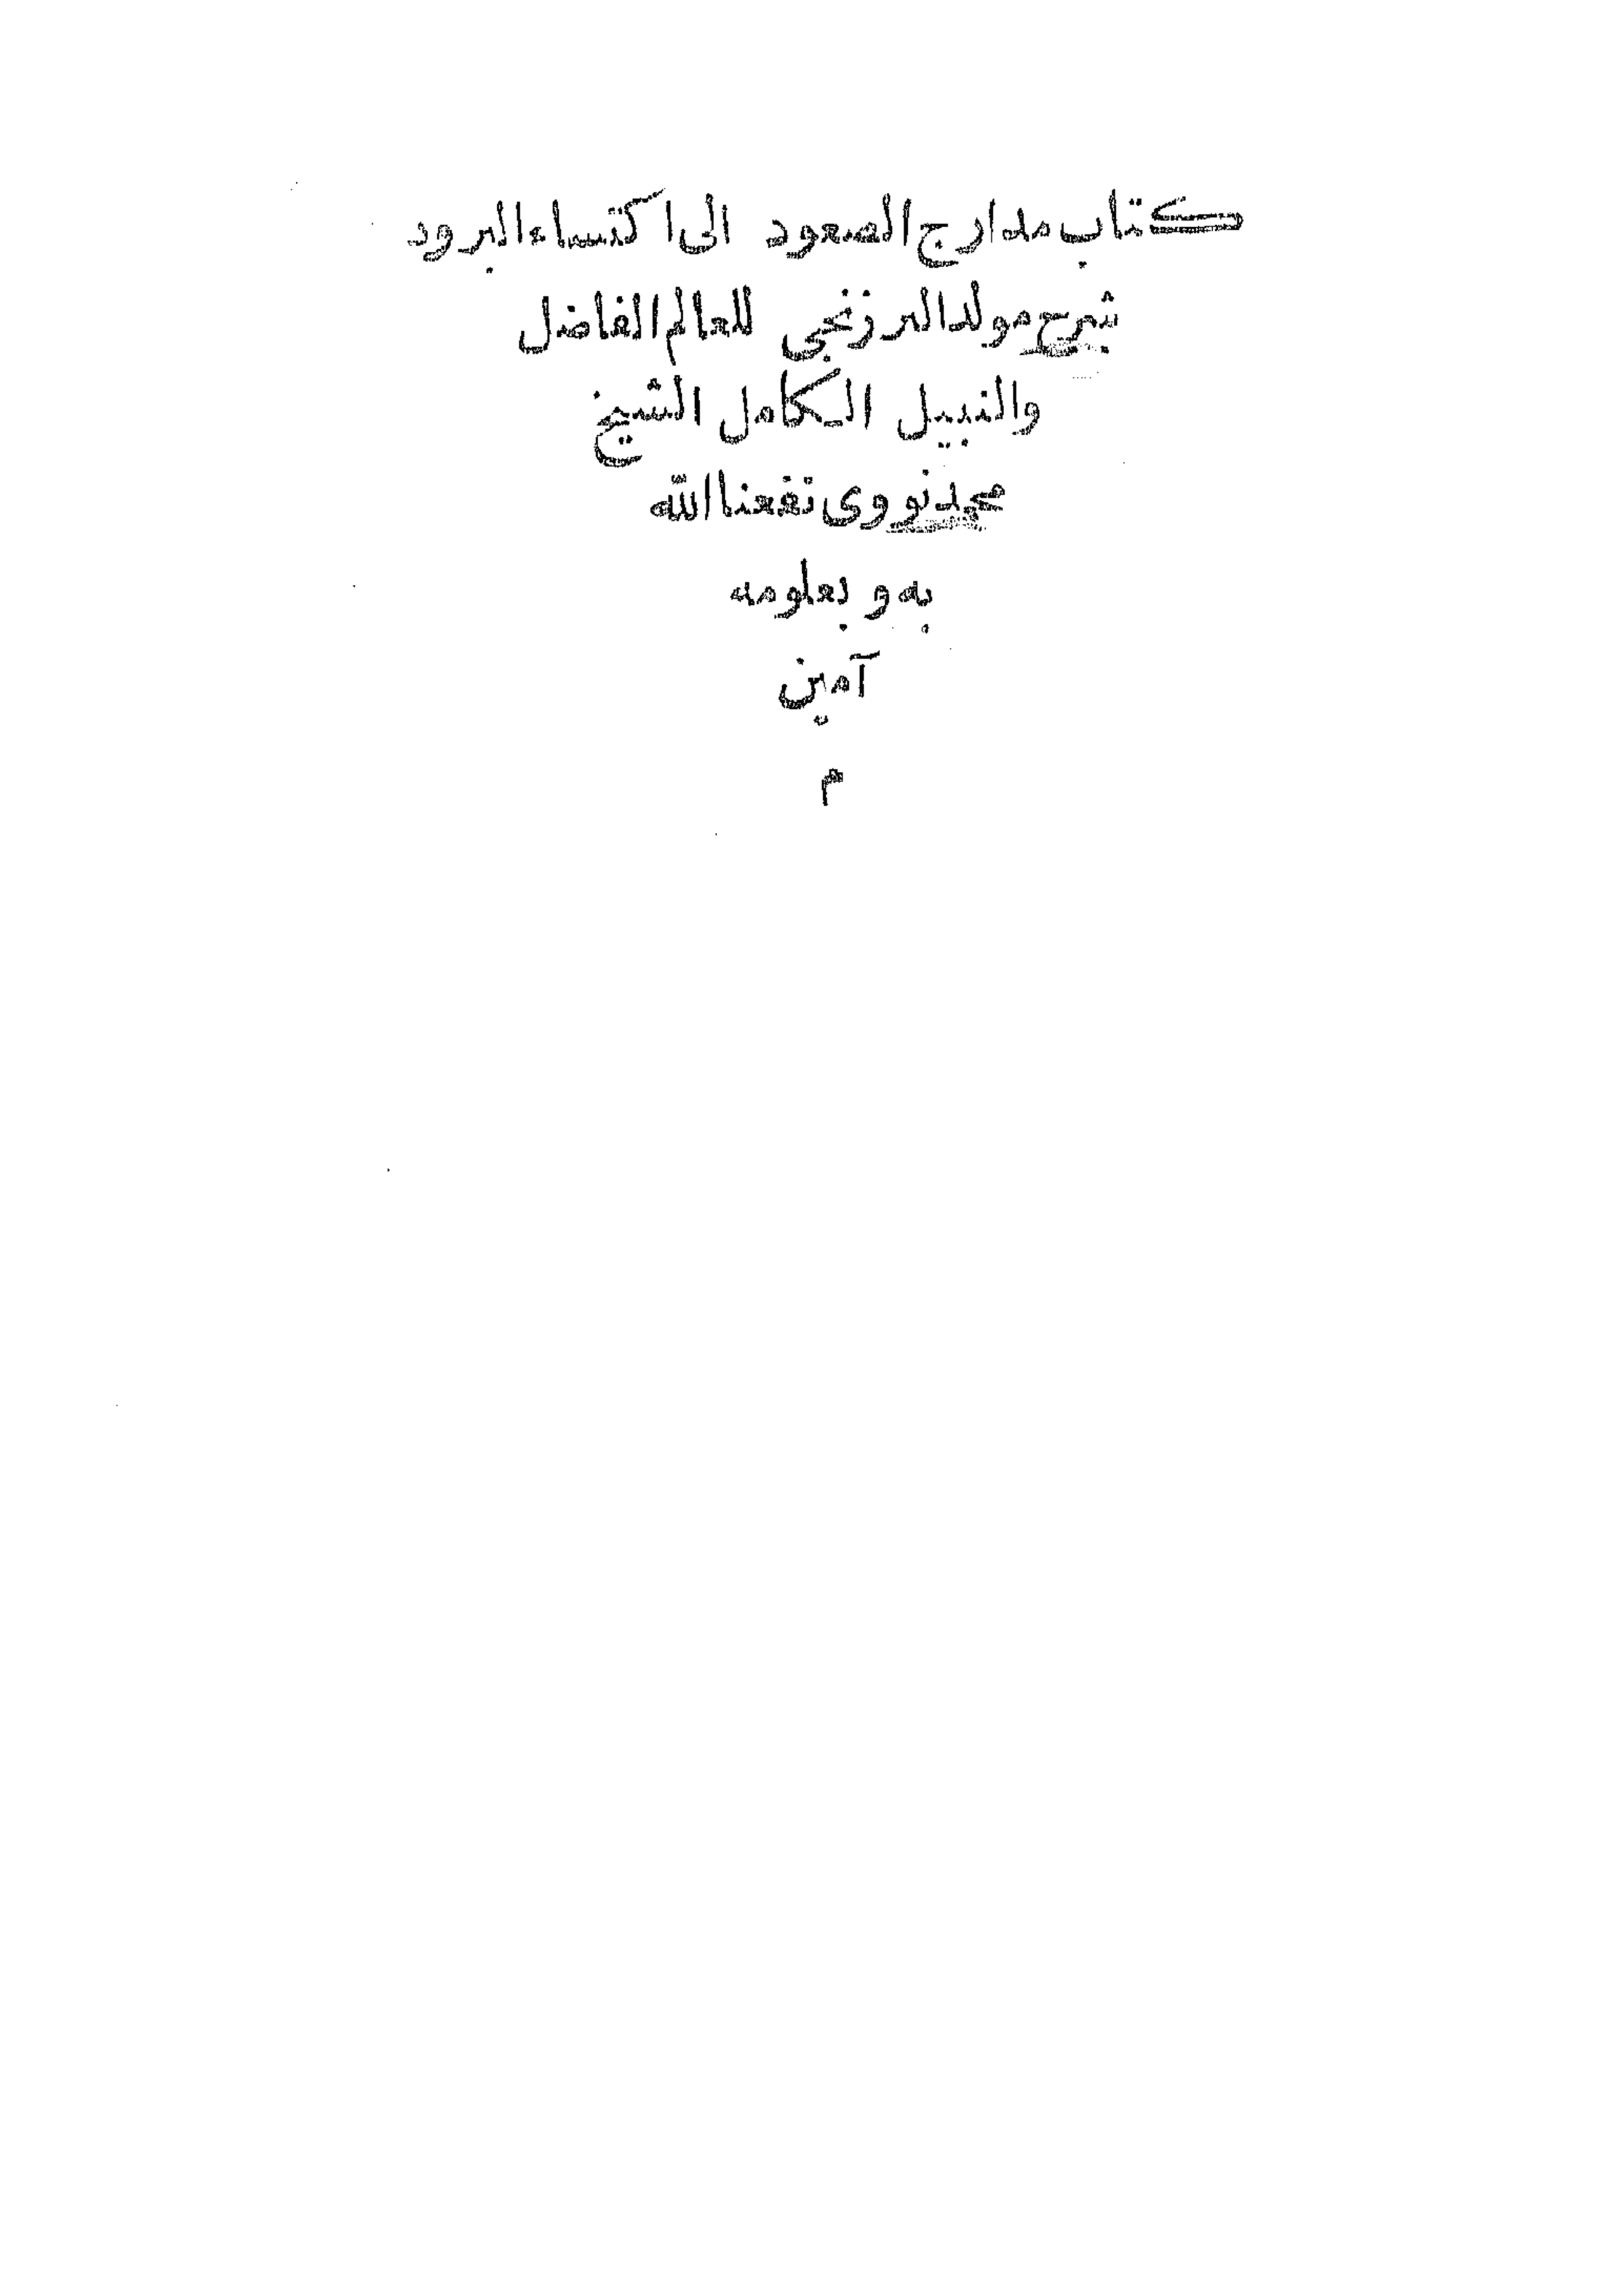 كتاب مدارج الصعود الى اكتساء البرود
شرح مولد البرزنجى للعالم الفاضل
والنبيل الكامل الشيخ
محمد نووى نفعنا الله
به وبعلومه
آمين
م